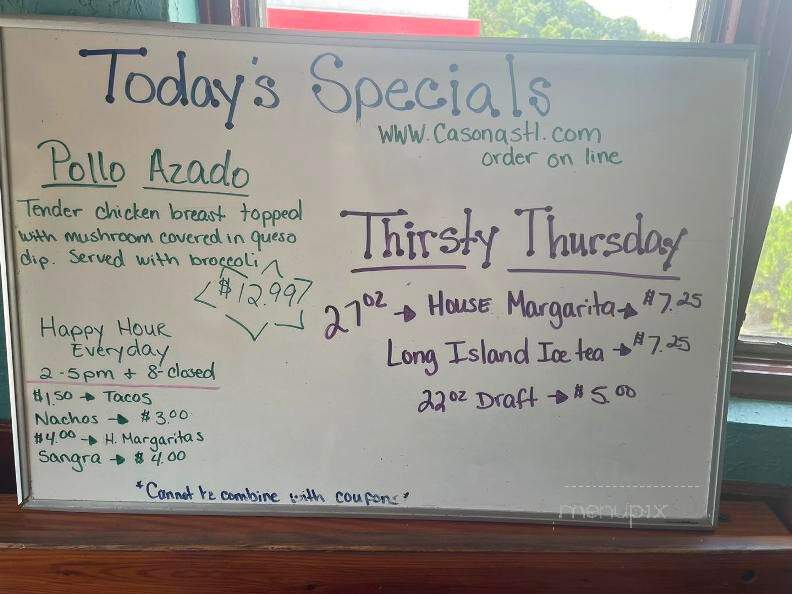 Today's Specials
www.Casonastl.com
order on line
Pollo Azado
Tender chicken breast topped
with mushroom covered in queso
dip. Served with broccoli
$12.99
Happy Hour
Everyday
2-5pm + 8-closed
$1.50 → Tacos
Nachos → $3.00
$4.00 → H. Margaritas
Sangra → $4.00
Thirsty Thursday
27oz → House Margarita → $7.25
Long Island Ice tea → $7.25
22oz Draft → $5.00
*Cannot be combine with coupons*
menupix